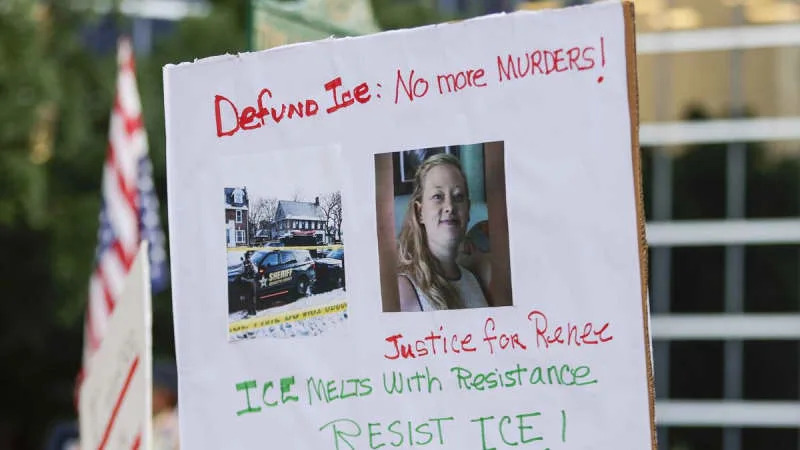 Defund Ice: No more MURDERS!
SHERIFF
Justice for Renee
ICE MELTS With Resistance
RESIST ICE!